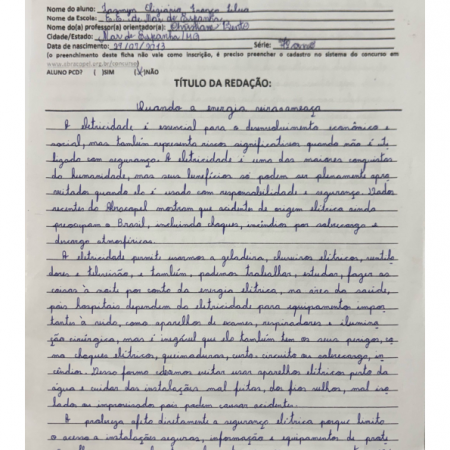 Nome do aluno:
Nome da Escola: E.E. de Mar de Espanha
Nome do(a) professor(a) orientador(a): Christiane Brito
Cidade/Estado: Mar de Espanha/MG
Data de nascimento: Série: 7º ano
(o preenchimento desta ficha não vale como inscrição, é preciso preencher o cadastro no sistema do concurso em
www.abracopel.org.br/
ALUNO PCD? ( )SIM (X)NÃO
TÍTULO DA REDAÇÃO:
Quando a energia vira ameaça
A eletricidade é essencial para o desenvolvimento econômico e
social, mas também representa riscos significativos quando não é
ligada com segurança. A eletricidade é uma das maiores conquistas
da humanidade, mas seus benefícios só podem ser plenamente apro
veitados quando ela é usada com responsabilidade e segurança. Dados
recentes da Abracopel mostram que acidente de origem elétrica ainda
preocupam o Brasil, incluindo choques, incêndios por sobrecarga e
descarga atmosféricas.
A eletricidade permite usarmos a geladeira, chuveiros elétricos, ventila
dores e televisão, e também, podemos trabalhar, estudar, fazer as
coisas à noite por conta da energia elétrica, na área da saúde,
pois hospitais dependem da eletricidade para equipamento impor
tante à vida, como aparelhos de exames, respiradores e ilumina
ção cirúrgica, mas é inegável que ela também tem os seus perigos, co
mo choques elétricos, queimaduras, curto circuito ou sobrecarga, in
cêndios. Dessa forma devemos evitar usar aparelhos elétricos perto da
água e cuidar das instalações mal feitas, dos fios velhos, mal iso
lados ou improvisados pois podem causar acidente.
A pobreza afeta diretamente a segurança elétrica porque limita
o acesso a instalações seguras, informação e equipamentos de prote